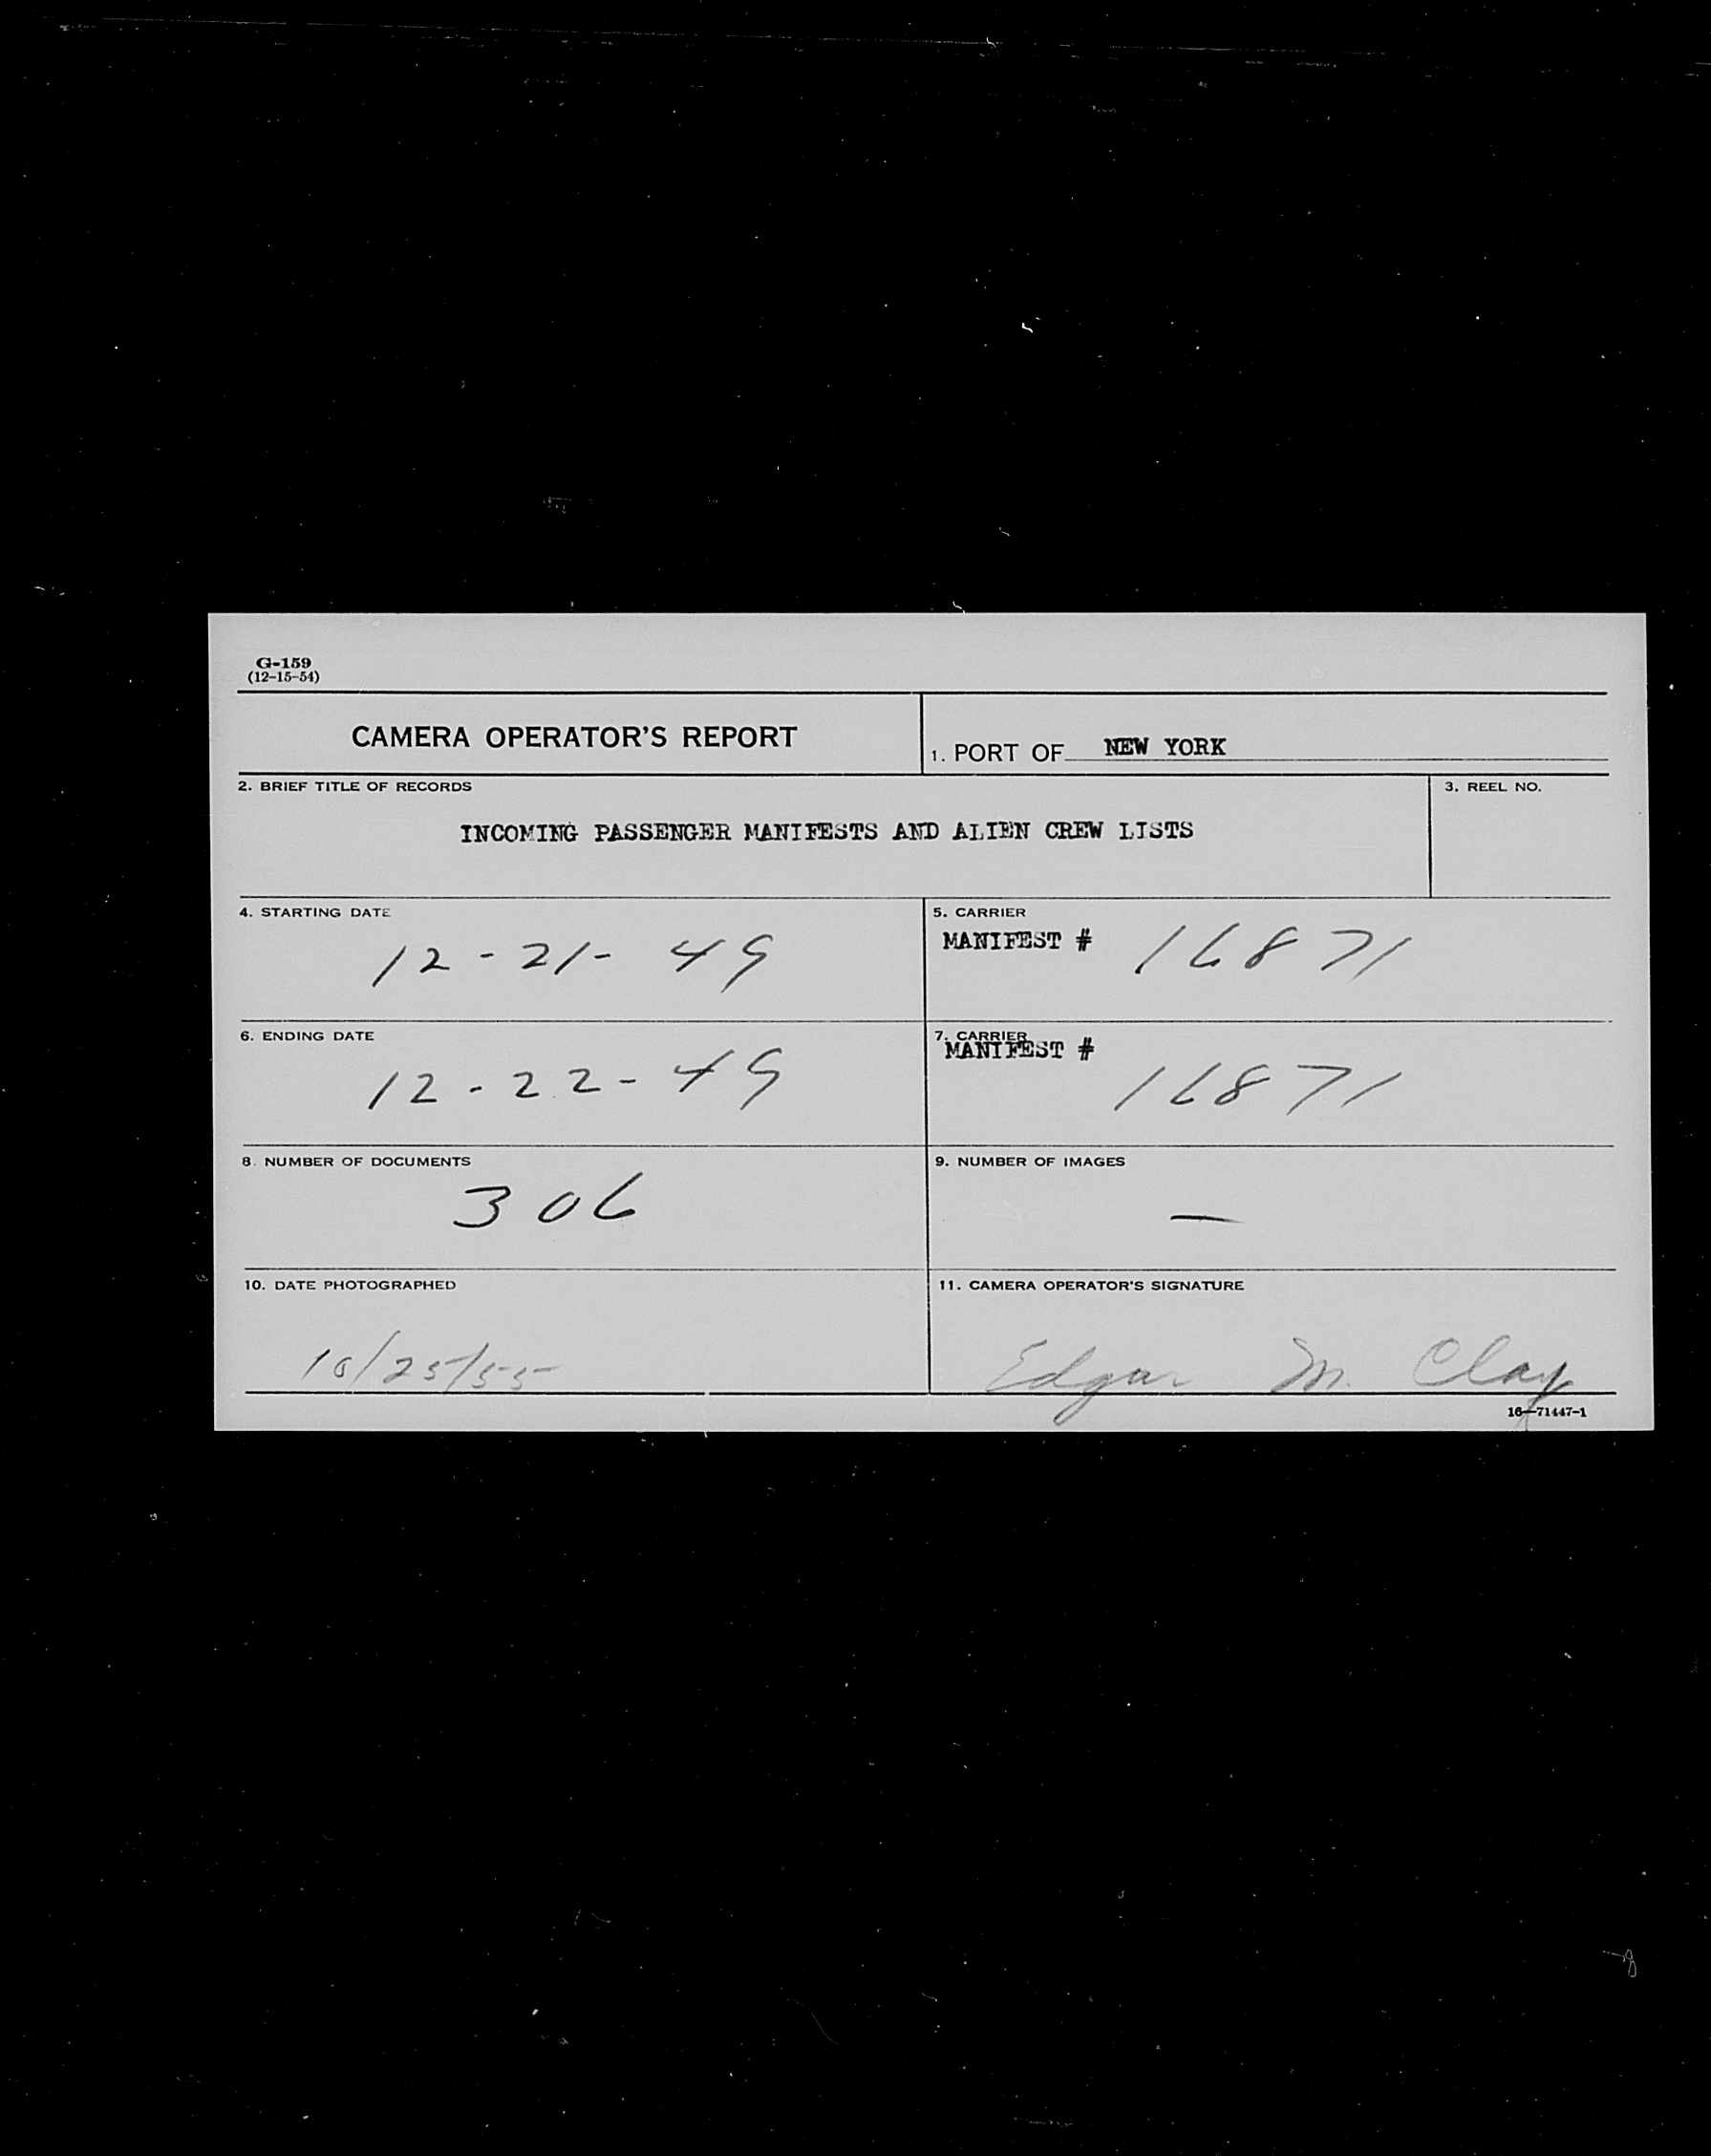 G-159
(12-15-54)
CAMERA OPERATOR'S REPORT
1. PORT OF NEW YORK
2. BRIEF TITLE OF RECORDS
INCOMING PASSENGER MANIFESTS AND ALIEN CREW LISTS
3. REEL NO.
4. STARTING DATE
12-21-49
5. CARRIER
MANIFEST # 16871
6. ENDING DATE
12-22-49
7. CARRIER
MANIFEST #
16871
8. NUMBER OF DOCUMENTS
306
9. NUMBER OF IMAGES
—
10. DATE PHOTOGRAPHED
10/25/55
11. CAMERA OPERATOR'S SIGNATURE
Edgar M. Clay
16—71447-1